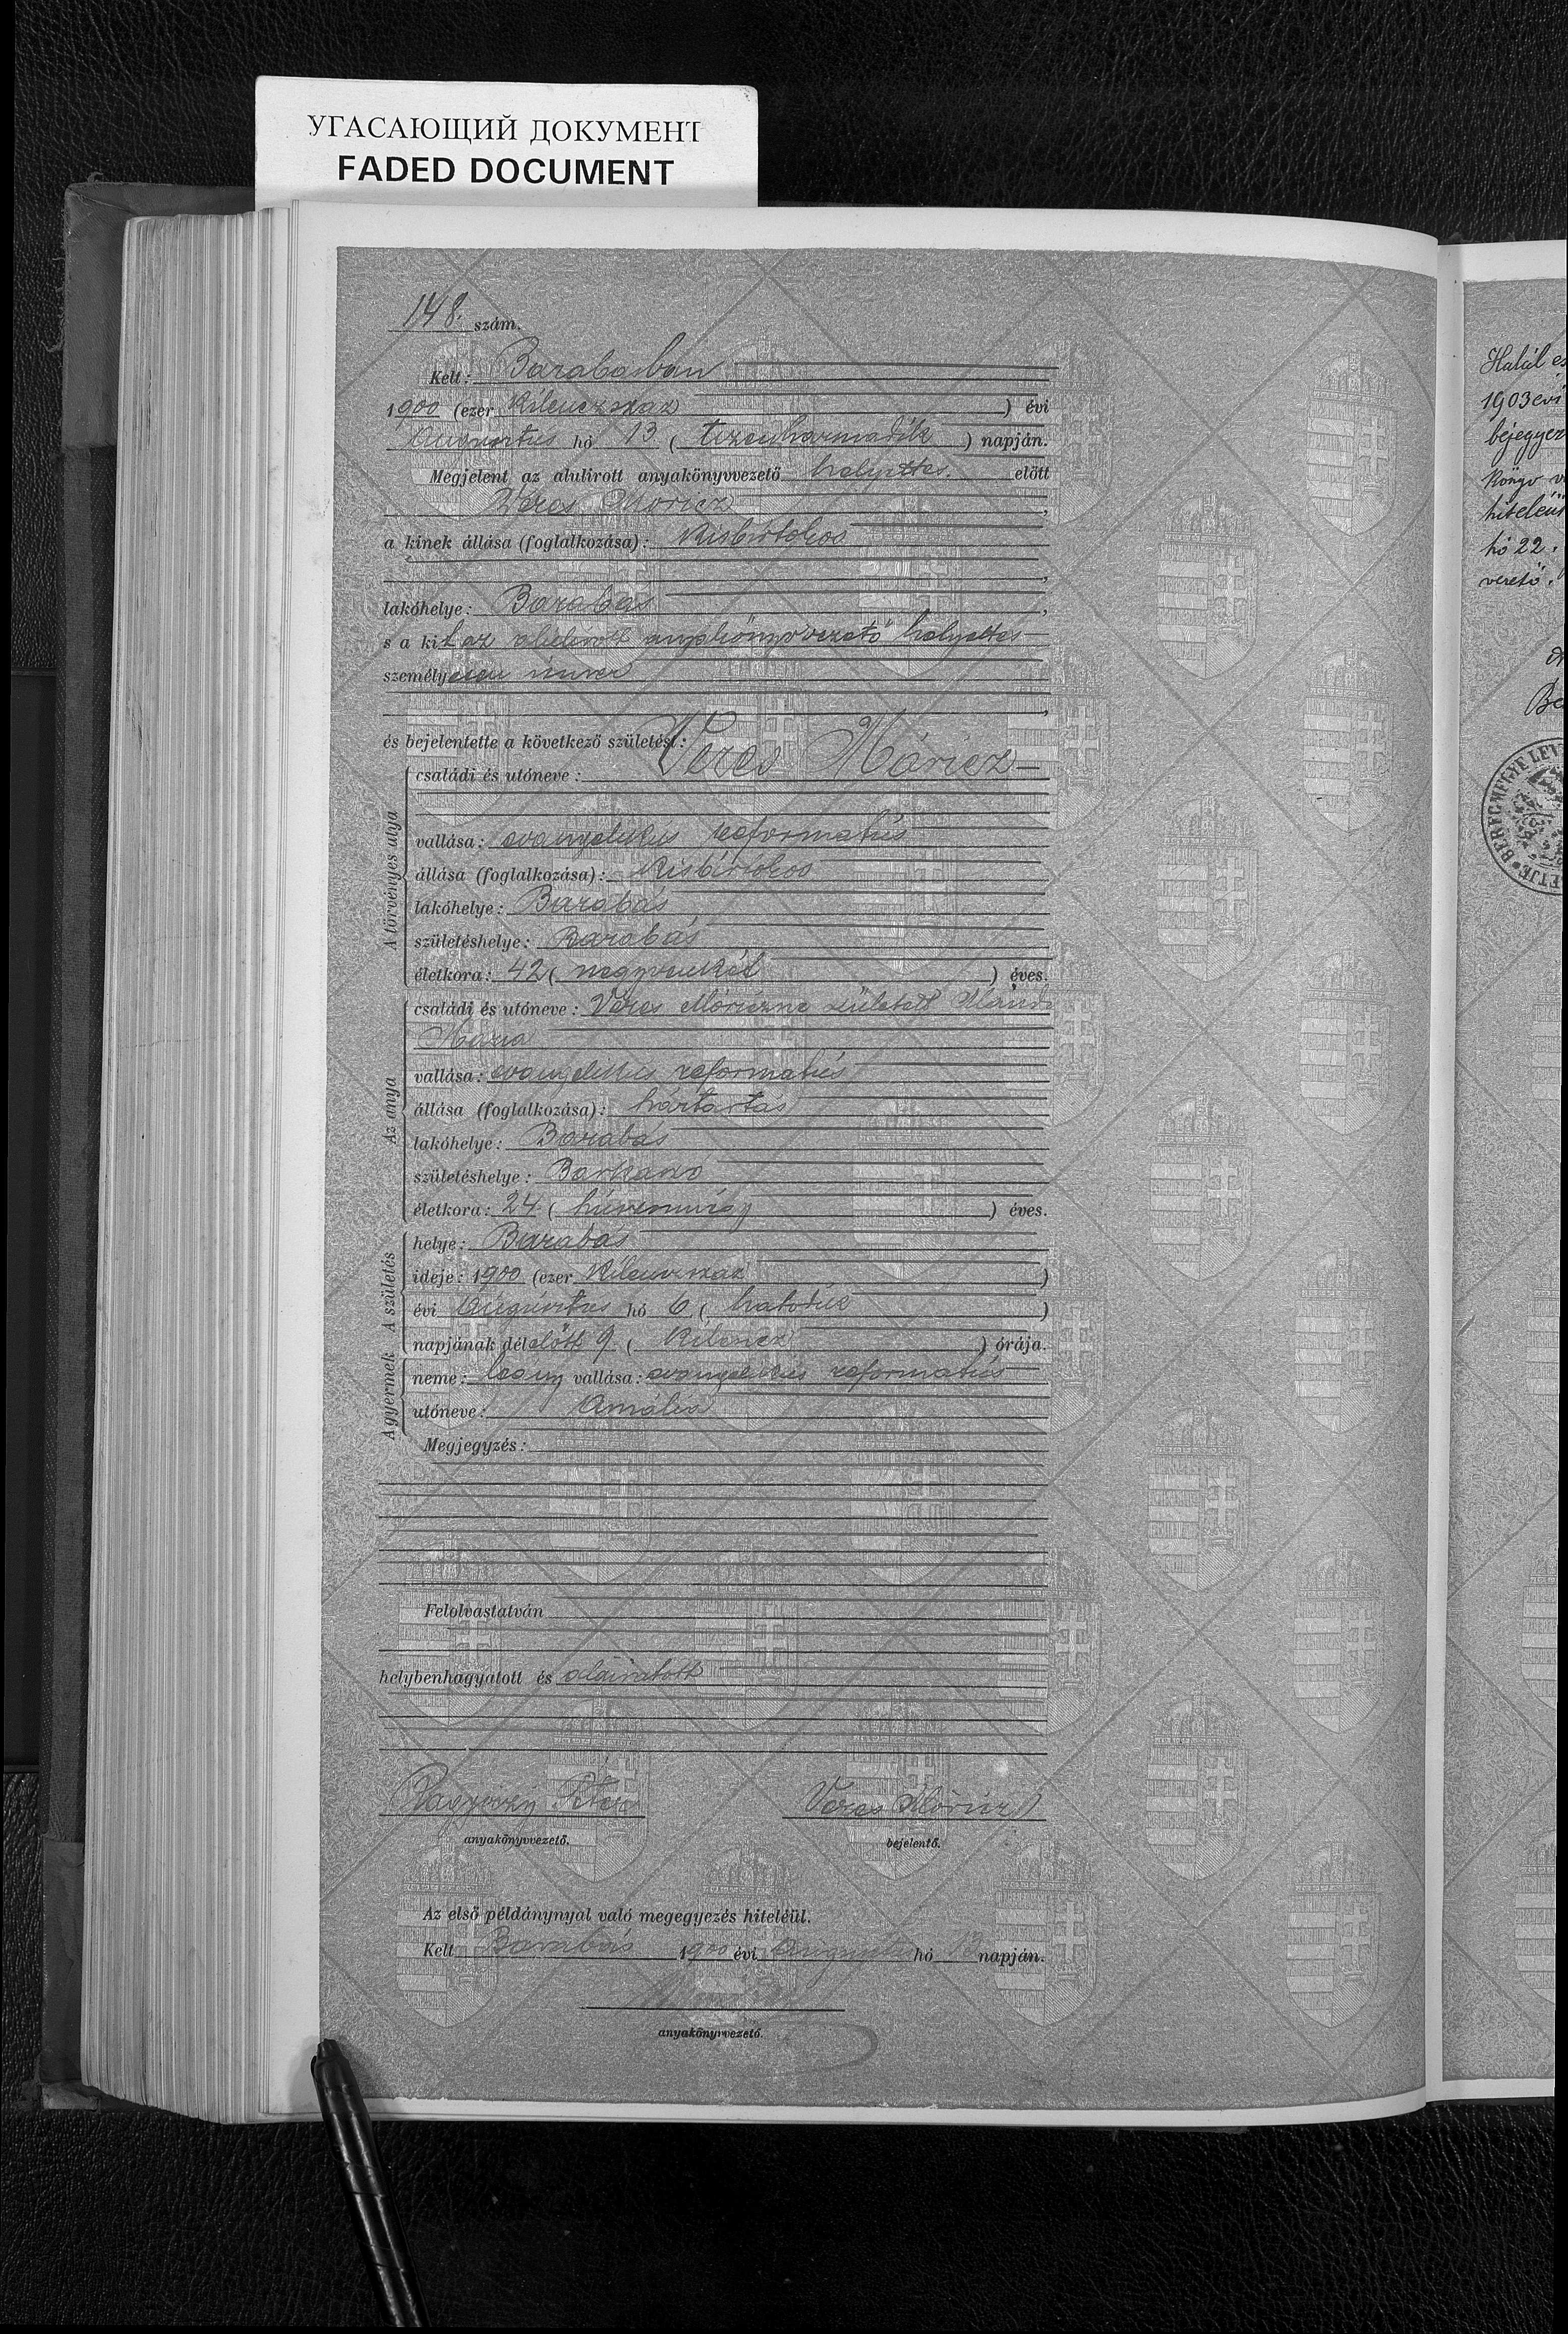 УГАСАЮЩИЙ ДОКУМЕНТ
FADED DOCUMENT
148. szám.
Kelt: Barabásban
1900 (ezer kilenczszáz) évi
Augusztus hó 13 (tizenharmadik) napján.
Megjelent az alulirott anyakönyvvezető helyettes. előtt
Veres Móricz,
a kinek állása (foglalkozása): Kisbirtokos
,
lakóhelye: Barabás,
s a kit az alulirott anyakönyvvezető helyettes
személyesen ismer
,
és bejelentette a következő születést:
A törvényes atya
családi és utóneve: Veres Móricz
vallása: evangelikus reformatus
állása (foglalkozása): Kisbirtokos
lakóhelye: Barabás
születéshelye: Barabás
életkora: 42 (negyvenkét) éves.
Az anya
családi és utóneve: Veres Móriczné született
Mária
vallása: evangelikus reformatus
állása (foglalkozása): háztartás
lakóhelye: Barabás
születéshelye: Barkaszó
életkora: 24 (huszonnégy) éves.
A gyermek A születés
helye: Barabás
ideje: 1900 (ezer kilenczszáz)
évi Augusztus hó 6 (hatodik)
napjának délelőtt 9 (kilencz) órája.
neme: leány vallása: evangelikus reformatus
utóneve: Amália
Megjegyzés:
Felolvastatván
helybenhagyatott és aláiratott
Péter
Veres Móricz
anyakönyvvezető.
bejelentő.
Az első példánynyal való megegyezés hiteléül.
Kelt Barabás 1900 évi Augusztus hó 13 napján.
anyakönyvvezető.
Halál
1903 évi
bejegyez
hó 22.
vezető.
BEREGMEGYE